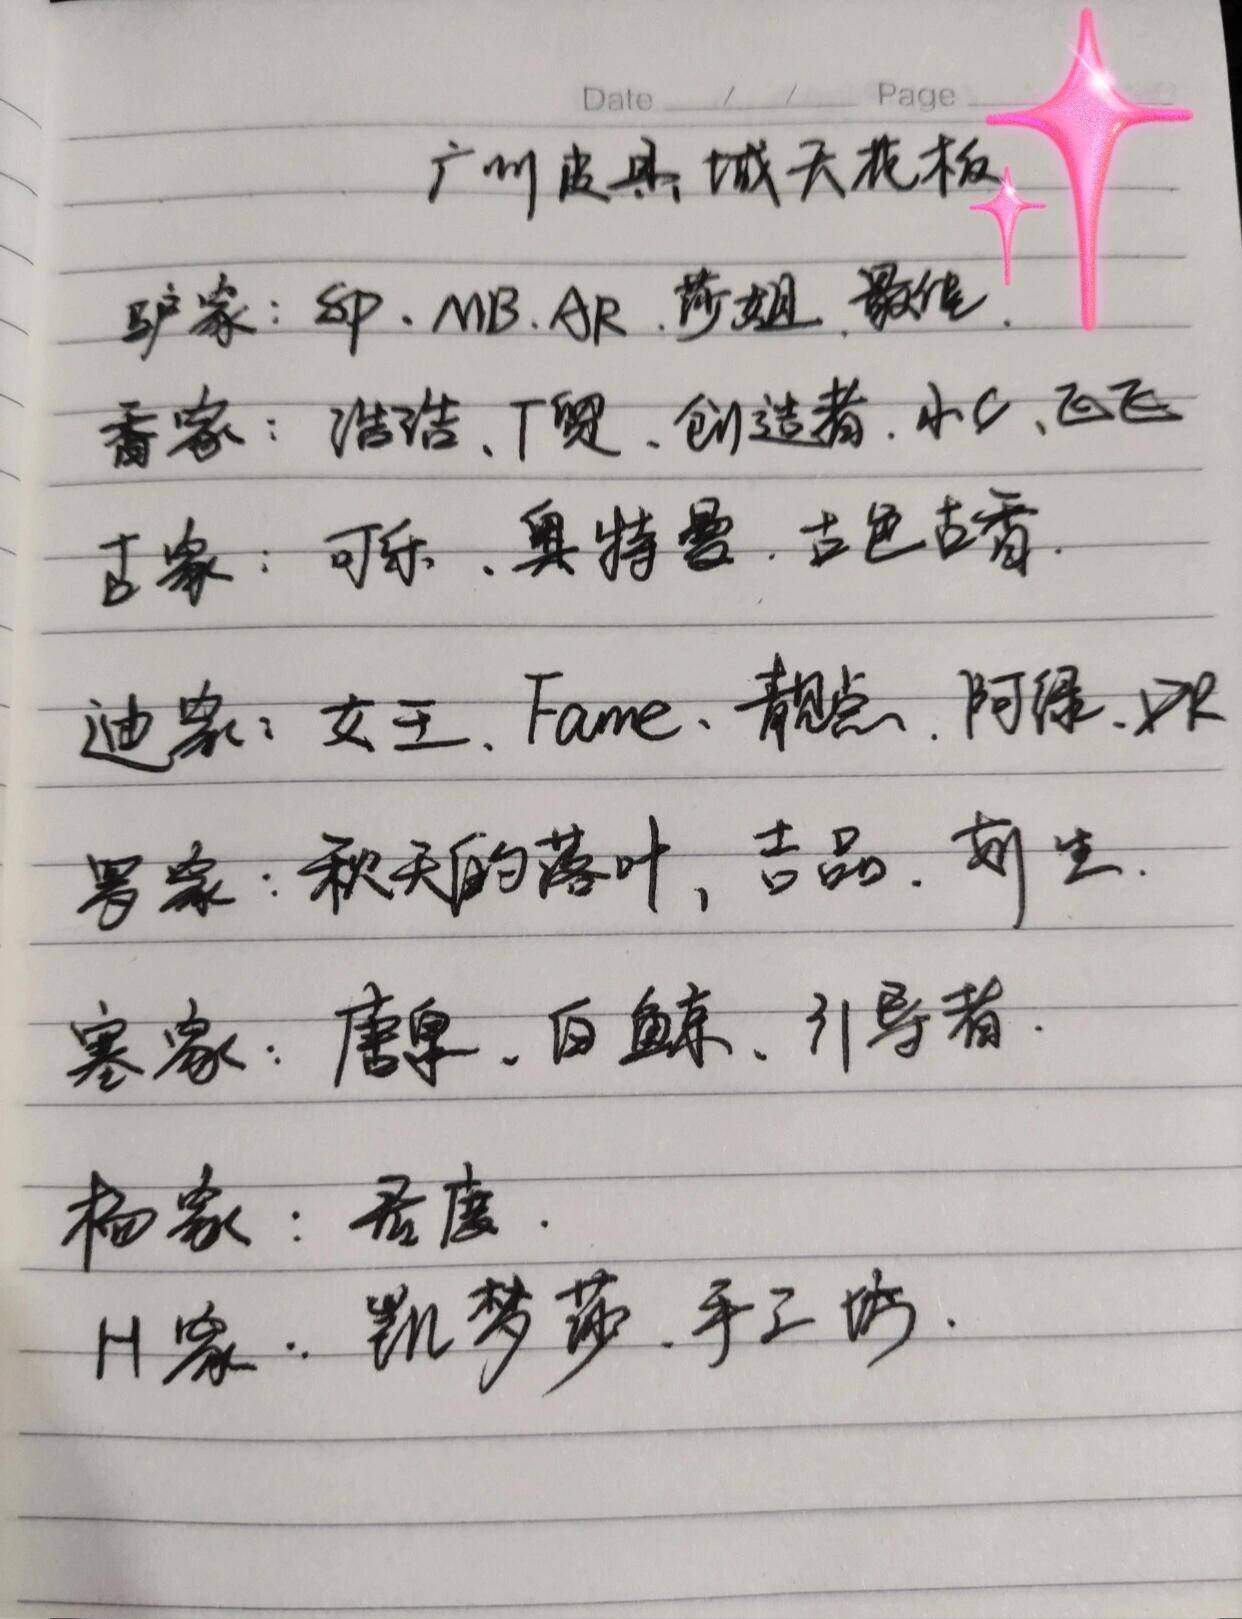 Date / / Page
广州皮具城天花板
驴家：SP、MB、AR、莎姐、最佳、
香家：浩浩、T贸、创造者、小C、飞飞
古家：可乐、奥特曼、古色古香.
迪家：女王、Fame、靓点、阿绿、DR
罗家：秋天的落叶、吉品、刘生.
塞家：唐果、白鲸、引导者.
杨家：君度.
H家：凯梦莎、手工坊.